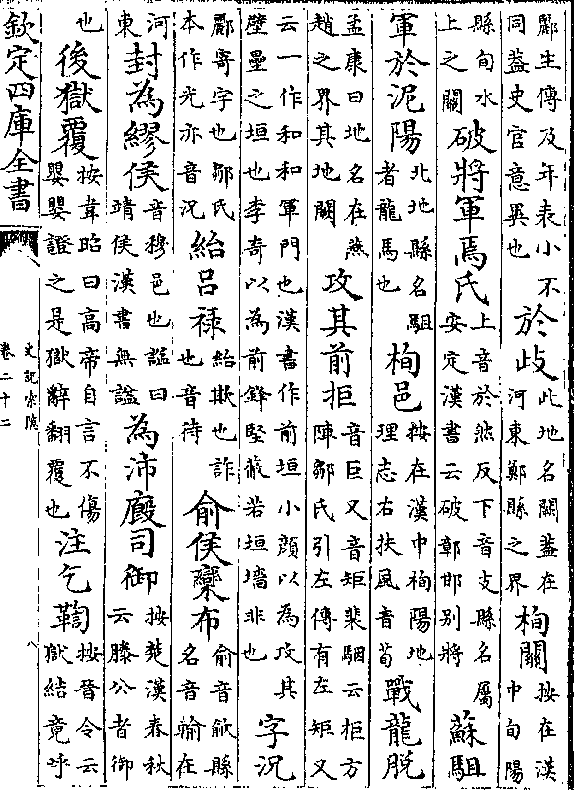 酈生傳及年表小不同蓋史官意異也於歧此地名闕蓋在河東鄭縣之界栒關按在漢中旬陽
縣旬水上之關破將軍焉氏上音於然反下音支縣名屬安定漢書云破鄣邯別將蘇駔
軍於泥陽北地縣名駔者龍馬也栒邑按在漢中栒陽地理志右扶風音荀戰龍脫
孟康曰地名在燕趙之界其地闕攻其前拒音巨又音矩裴駰云拒方陣鄒氏引左傳有左矩又
云一作和和軍門也漢書作前垣小顔以為攻其壁壘之垣也李奇以為前鋒堅蔽若垣墻非也字況
酈寄字也鄒氏本作光亦音況紿呂祿紿欺也詐也音待俞侯欒布俞音歈縣名音輸在
河東封為繆侯音穆邑也諡曰靖侯漢書無諡為沛廄司御按楚漢春秋云滕公者御
也後獄覆按韋昭曰高帝自言不傷嬰嬰證之是獄辭翻覆也注乞鞫按晉令云獄結竟呼
欽定四庫全書
史記索隱
卷二十二
八